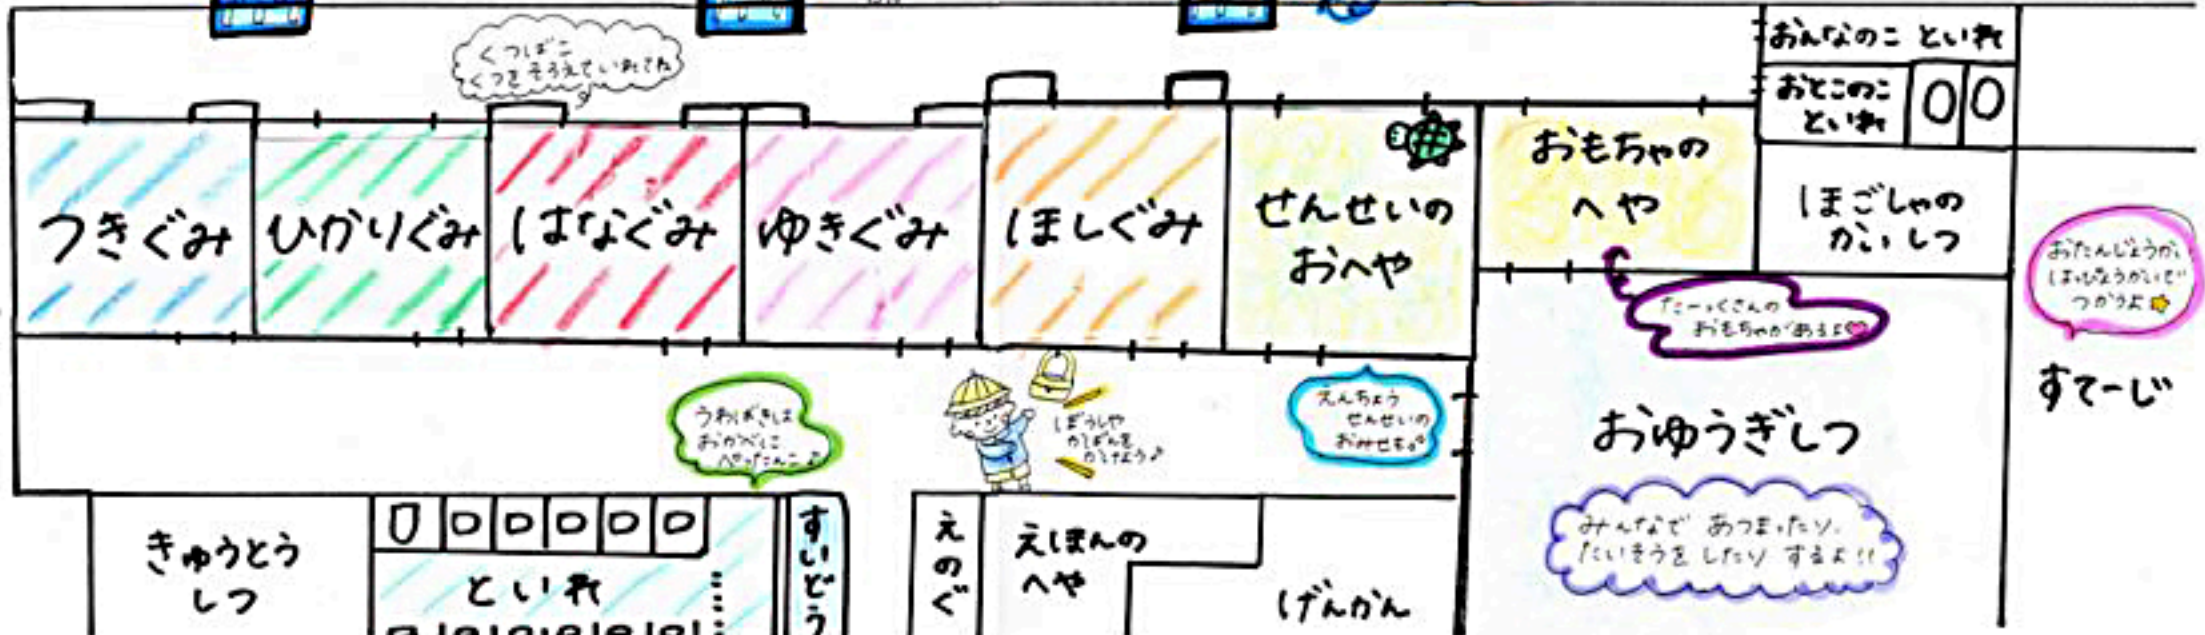 くつばこ
くつをそろえていれてね
おんなのこ といれ
おとこのこ
といれ
つきぐみ
ひかりぐみ
はなぐみ
ゆきぐみ
ほしぐみ
せんせいの
おへや
おもちゃの
へや
ほごしゃの
かいしつ
おたんじょうかい
はっぴょうかいで
つかうよ
たーっくさんの
おもちゃがあるよ
すてーじ
うわばきは
おかべに
ぺったんこ♪
ぼうしや
かばんを
かけよう♪
えんちょう
せんせいの
おみせも。
おゆうぎしつ
みんなで あつまったり、
たいそうを したり するよ!!
きゅうとう
しつ
といれ
すいどう
えのぐ
えほんの
へや
げんかん